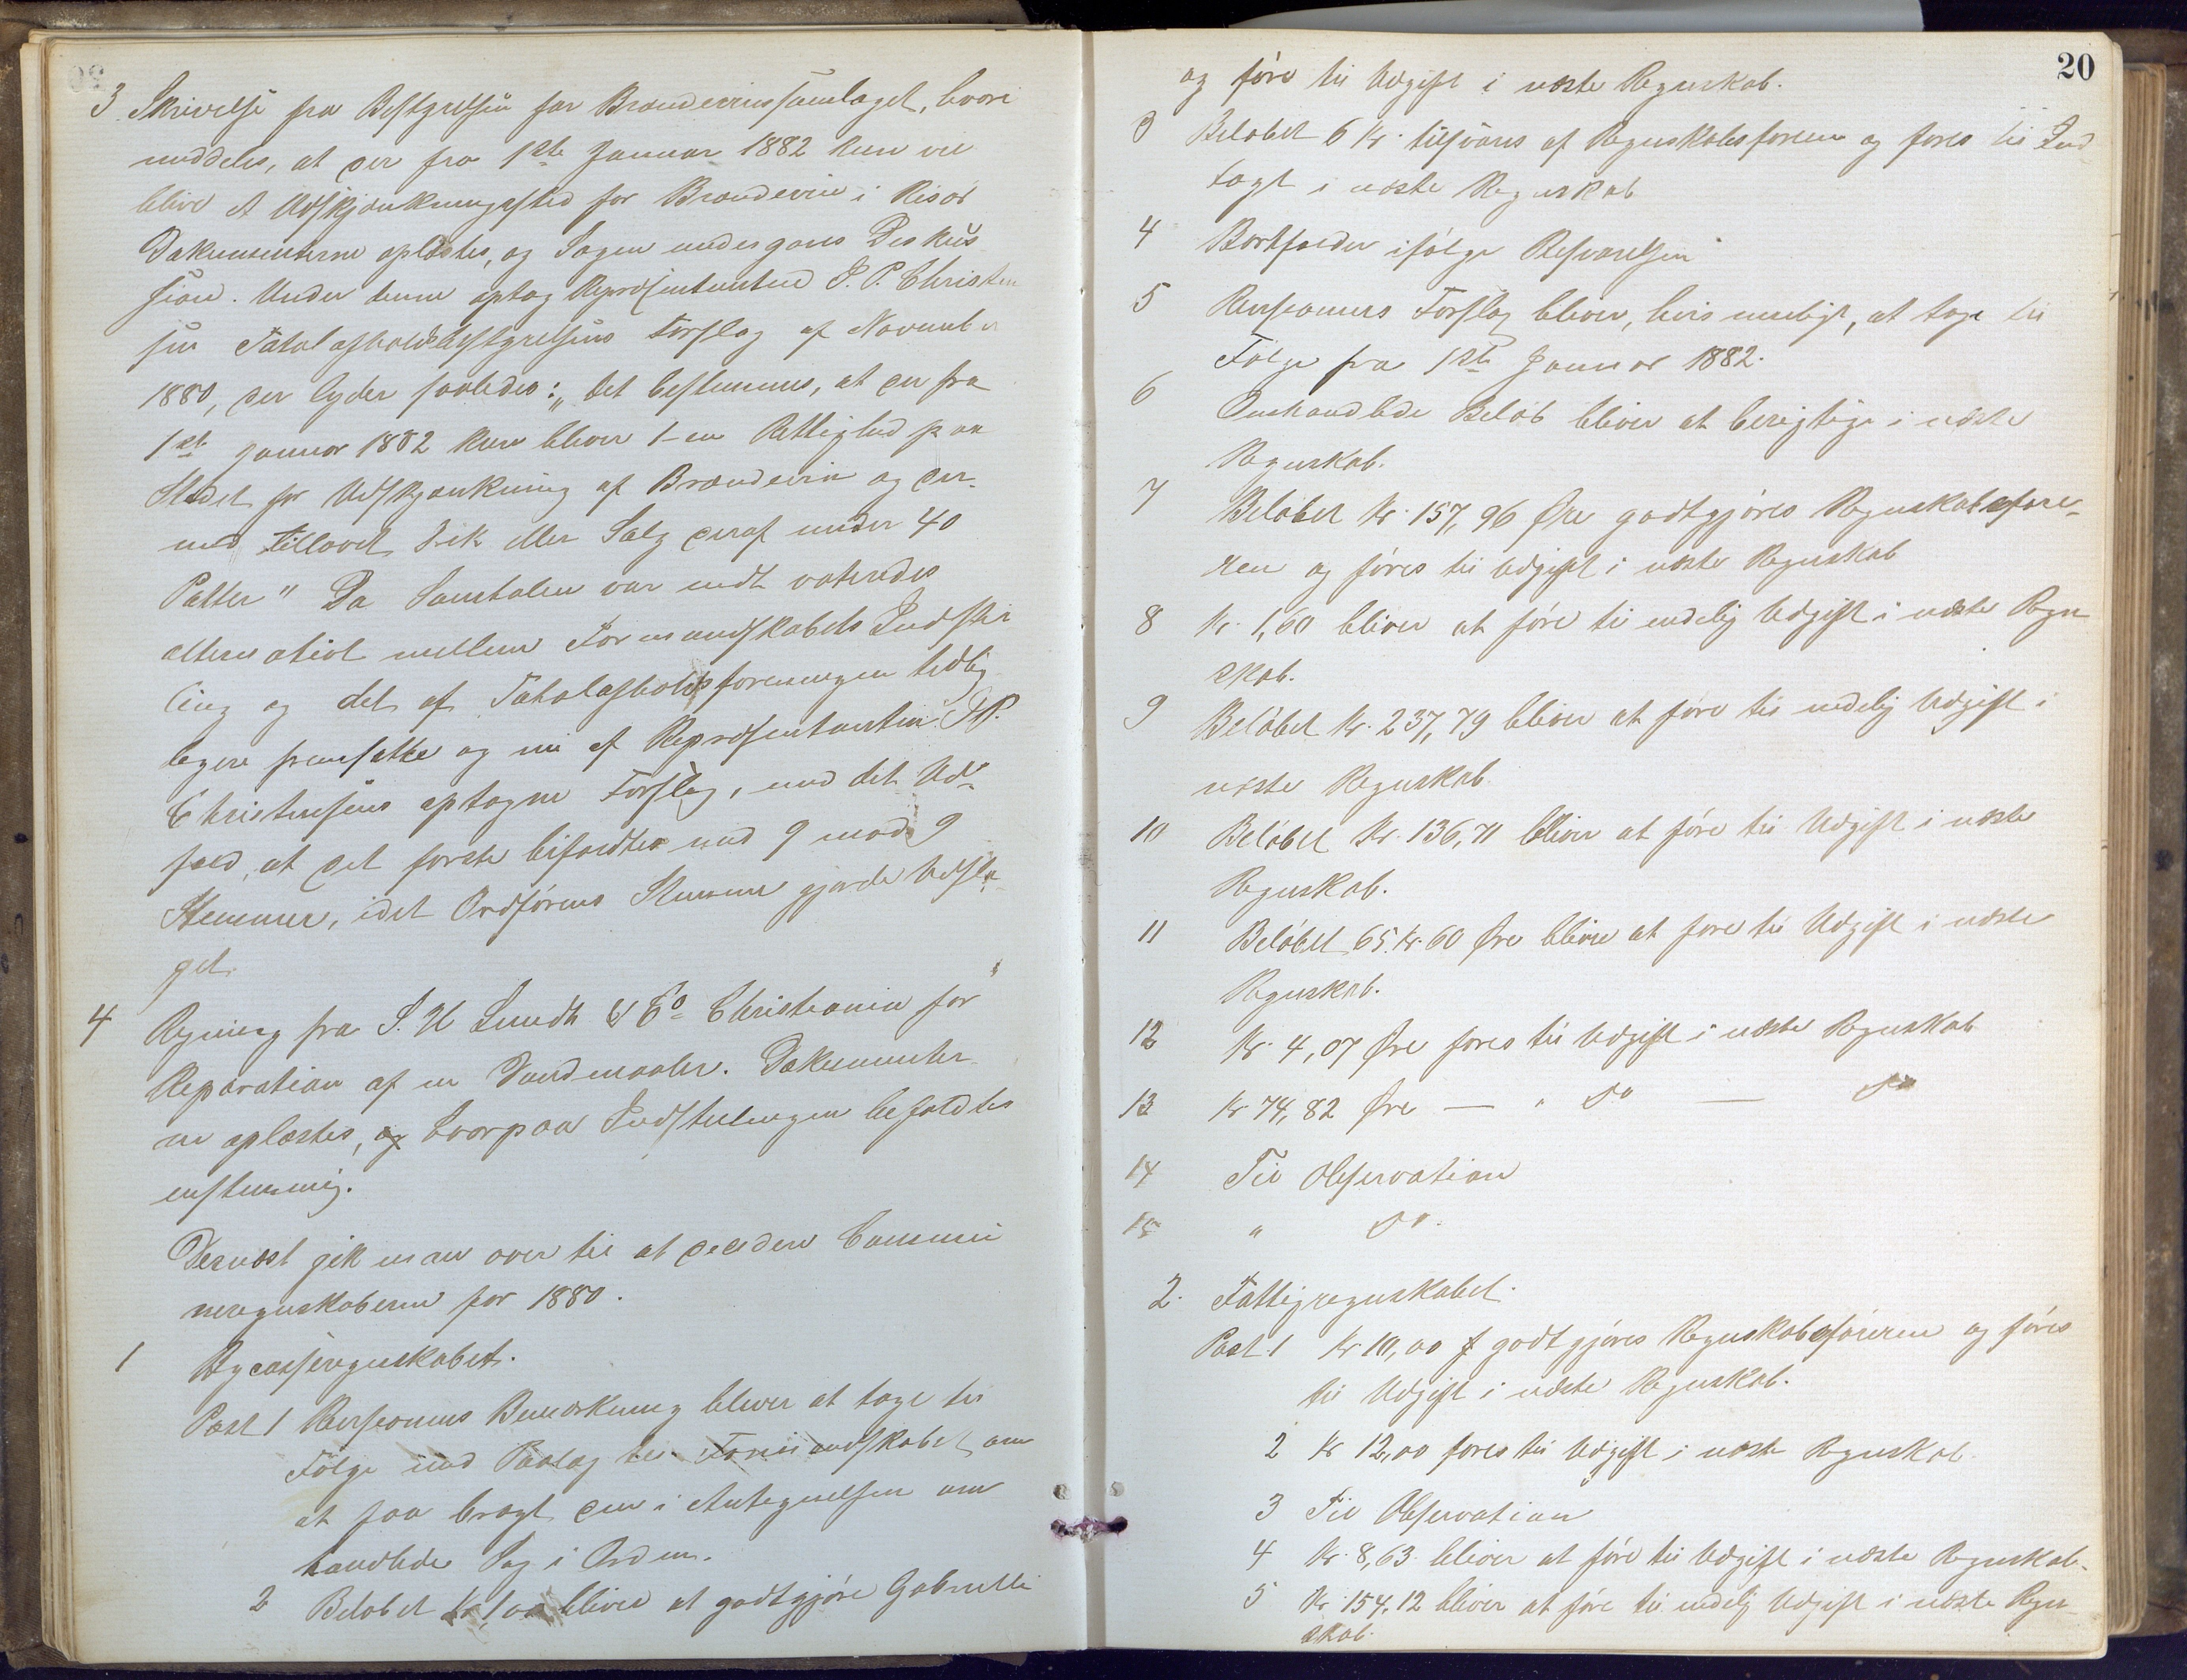 3. Skrivelse fra Bestyrelsen for Brændevinssamlaget, hvori
meddeles, at der fra 1ste Januar 1882 kun vil
blive et Udskjænkningssted for Brændevin i Risør
Dokumenterne oplæstes, og Sagen undergaves Diskus
sion. Under denne optog Repræsentanten J. P. Christen
sen Totalafholdsbestyrelsens Forslag af November
1880, der lyder saaledes: „Det bestemmes, at der fra
1ste Januar 1882 kun bliver 1 - en Rettighed paa
Stedet for Udskjænkning af Brændevin og der-
med tillavet Drik eller Salg deraf under 40
Potter" Da Samtalen var endt voteredes
alternativt mellem Formandskabets Indstil
ling og det af Totalafholdsforeningen tidlig
legere fremsatte og nu af Repræsentanten J. P.
Christensens optagne Forslag, med det Ud-
fald, at det første bifaldtes med 9 mod 9
Stemmer, idet Ordførerens Stemme gjorde Udsla-
get.
4 Regning fra S. H. Lundh & Co Christiania for
Reparation af en Vandmaaler. Dokumenter
ne oplæstes, og hvorpaa Indstillingen bifaldtes
enstemmig.
Dernæst gik man over til at decidere Commu
neregnskaberne for 1880.
1 Bycasseregnskabet.
Post 1 Revisionens Bemærkning bliver at tage til
Følge med Paalæg til Formandskabet om
at faa bragt den i Antegnelsen om
handlede Sag i Orden.
2 Beløbet Kr. 1,00 bliver at godtgjøre Gabrielle
20
og føre til Udgift i næste Regnskab.
3 Beløbet 6 Kr. tilsvares af Regnskabsføreren og føres til Ind
tægt i næste Regnskab
4 Bortfalder ifølge Besvarelsen
5 Revisionens Forslag bliver, hvis muligt, at tage til
Følge fra 1ste Januar 1882.
6 Omhandlede Beløb bliver at berigtige i næste
Regnskab.
7 Beløbet Kr. 157,96 Øre godtgjøres Regnskabsføre-
ren og føres til Udgift i næste Regnskab
8 Kr. 1,60 bliver at føre til endelig Udgift i næste Regn
skab.
9 Beløbet Kr. 237,79 bliver at føre til endelig Udgift i
næste Regnskab
10 Beløbet Kr. 136,71 bliver at føre til Udgift i næste
Regnskab.
11 Beløbet 65 Kr. 60 Øre bliver at føre til Udgift i næste
Regnskab.
12 Kr. 4,07 Øre føres til Udgift i næste Regnskab
13 Kr 74,82 Øre — " Do — Do
14 Til Observation
15 " Do.
2. Fattigregnskabet.
Post 1 Kr 10,00 godtgjøres Regnskabsføreren og føres
til Udgift i næste Regnskab.
2 Kr 12,00 føres til Udgift i næste Regnskab.
3 Til Observation
4 Kr. 8,63 bliver at føre til Udgift i næste Regnskab.
5 Kr. 154,12 bliver at føre til endelig Udgift i næste Regn
skab.